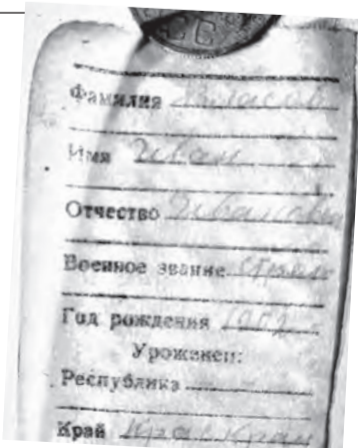 СБ
Фамилия Власов
Имя Иван
Отчество Иванович
Военное звание
Год рождения 1902
Уроженец:
Республика
Край